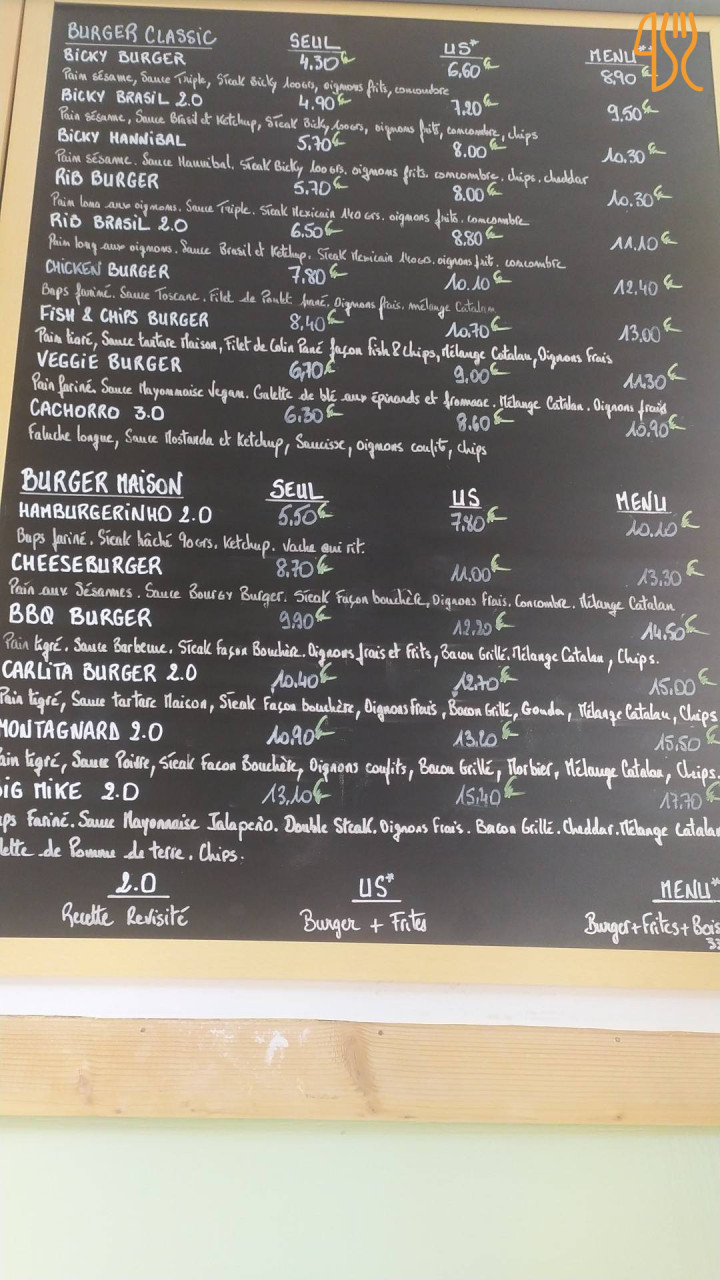 BURGER CLASSIC SEUL US* MENU**
BICKY BURGER 4,30€ 6,60€ 8,90€
Pain sésame, Sauce Triple, Steak Bicky 100grs, oignons frits, concombre
BICKY BRASIL 2.0 4.90€ 7,20€ 9,50€
Pain sésame, Sauce Brasil et Ketchup, Steak Bicky 100grs, oignons frits, concombre, chips
BICKY HANNIBAL 5.70€ 8.00€ 10.30€
Pain sésame. Sauce Hannibal. Steak Bicky 100grs. oignons frits. concombre. chips. cheddar
RIB BURGER 5.70€ 8.00€ 10.30€
Pain long aux oignons. Sauce Triple. Steak Mexicain 140grs. oignons frits. concombre
RIB BRASIL 2.0 6.50€ 8.80€ 11.10€
Pain long aux oignons. Sauce Brasil et Ketchup. Steak Mexicain 140grs. oignons frit. concombre
CHICKEN BURGER 7,80€ 10.10€ 12,40€
Baps fariné. Sauce Toscane. Filet de Poulet pané. Oignons frais. mélange Catalan
FISH & CHIPS BURGER 8,40€ 10.70€ 13,00€
Pain tigré, Sauce tartare Maison, Filet de Colin Pané façon Fish & Chips, Mélange Catalan, Oignons Frais
VEGGIE BURGER 6,70€ 9,00€ 11.30€
Pain fariné. Sauce Mayonnaise Vegan. Galette de blé aux épinards et fromage. Mélange Catalan. Oignons frais
CACHORRO 3.0 6.30€ 8.60€ 10.90€
Faluche longue, Sauce Mostarda et Ketchup, Saucisse, oignons confit, chips
BURGER MAISON SEUL US MENU
HAMBURGERINHO 2.0 5,50€ 7,80€ 10.10€
Baps fariné. Steak hâché 90grs. Ketchup. Vache qui rit.
CHEESEBURGER 8,70€ 11.00€ 13,30€
Pain aux Sésames. Sauce Bourgy Burger. Steak Façon bouchère, Oignons Frais. Concombre. Mélange Catalan
BBQ BURGER 9,90€ 12,20€ 14,50€
Pain tigré. Sauce Barbecue. Steak façon Bouchère. Oignons frais et Frits, Bacon Grillé. Mélange Catalan, Chips.
CARLITA BURGER 2.0 10,40€ 12.70€ 15,00€
Pain tigré, Sauce tartare Maison, Steak Façon bouchère, Oignons Frais, Bacon Grillé, Gouda, Mélange Catalan, Chips
MONTAGNARD 2.0 10.90€ 13.20€ 15,50€
ain tigré, Sauce Poivre, Steak Facon Bouchère, Oignons confits, Bacon Grillé, Morbier, Mélange Catalan, Chips.
IG MIKE 2.0 13,10€ 15,40€ 17,70€
ps Fariné. Sauce Mayonnaise Jalapeño. Double Steak. Oignons Frais. Bacon Grillé. Cheddar. Mélange Catalan
lette de Pomme de terre. Chips.
2.0 US* MENU*
Recette Revisité Burger + Frites Burger+Frites+Bois
33